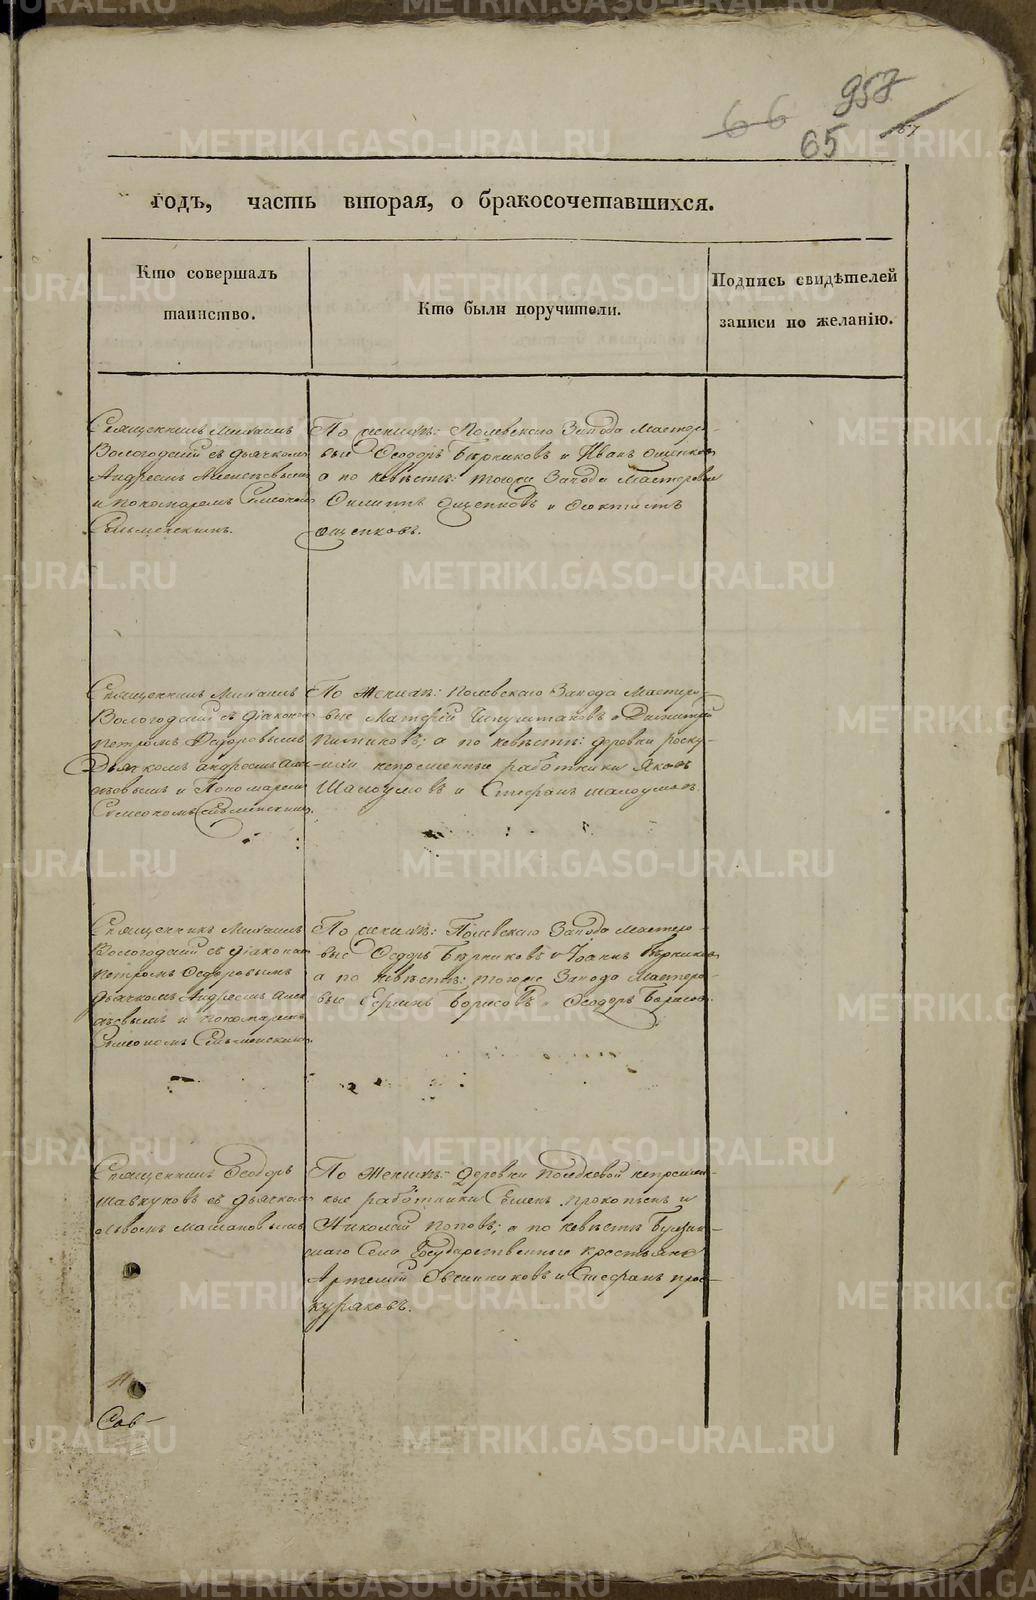 957
66
65
67
годъ, часть вторая, о бракосочетавшихся.
Кто совершалъ
таинство.
Кто были поручители.
Подпись свидѣтелей
записи по желанію.
Священникъ Михаилъ
Вологодскій съ дьячкомъ
Андреемъ Алексѣевымъ
и пономаремъ Симеономъ
По женихѣ: Полевскаго Завода Мастеро-
вые Ѳеодоръ Бѣрниковъ и Иванъ Ощепковъ
а по невѣстѣ: тогоже Завода Мастеровые
Ощепковъ и Ѳеоктистъ
Ощепковъ.
Священникъ Михаилъ
Вологодскій съ діакономъ
Петромъ Ѳедоровымъ
Дьячкомъ Андреемъ Алек-
сѣевымъ и Пономаремъ
Симеономъ
По Женихѣ: Полевскаго Завода Мастеро-
вые Матфей и Димитрій
Питиковъ; а по невѣстѣ: деревни
непременные работники Яковъ
Шалоумовъ и Стефанъ Шалоумовъ.
Священникъ Михаилъ
Вологодскій съ діакономъ
Петромъ Ѳедоровымъ
дьячкомъ Андреемъ Алек-
сѣевымъ и пономаремъ
Симеономъ
По женихѣ: Полевскаго Завода Мастеро-
вые Ѳедоръ Бѣрниковъ и Іоаннъ Бѣрниковъ
а по невѣстѣ: тогоже Завода Мастеро-
вые Ефимъ Борисовъ и Ѳеодоръ Борисовъ.
Священникъ Ѳеодоръ
Шавкуновъ съ дьячкомъ
По Женихѣ: деревни Полдневой непремен-
ные работники Семенъ Прокопьевъ и
Николай Поповъ; а по невѣстѣ
Села Государственные крестьяне
Артемій Овсянниковъ и Стефанъ Прос-
куряковъ.
Сов-
METRIKI.GASO-URAL.RU